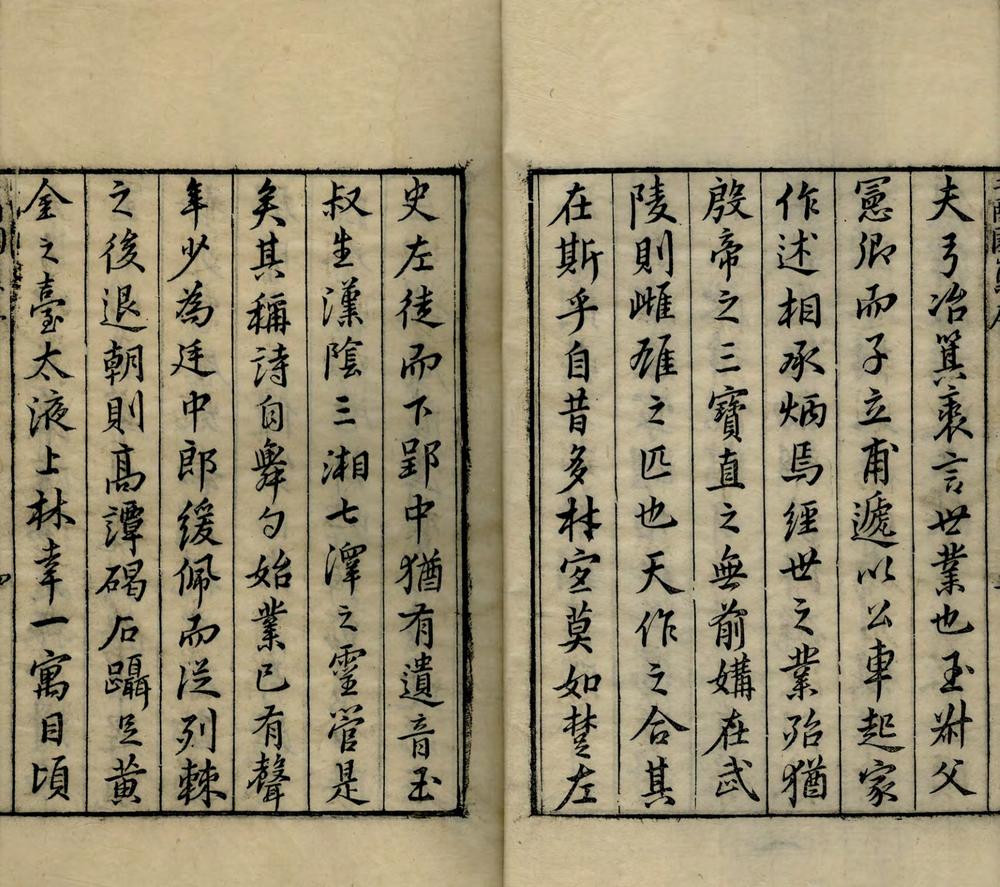 夫弓冶箕裘言世業也玉叔父
憲卿而子立甫遞以公車起家
作述相承炳焉經世之業殆猶
殷帝之三寶直之無前媾在武
陵則雌雄之匹也天作之合其
在斯乎自昔多材寔莫如楚左
史左徒而下郢中猶有遺音玉
叔生漢陰三湘七澤之靈管是
矣其稱詩自舞勺始業已有聲
年少為廷中郎緩佩而從列棘
之後退朝則高譚碣石躡足黃
金之臺太液上林幸一寓目頃